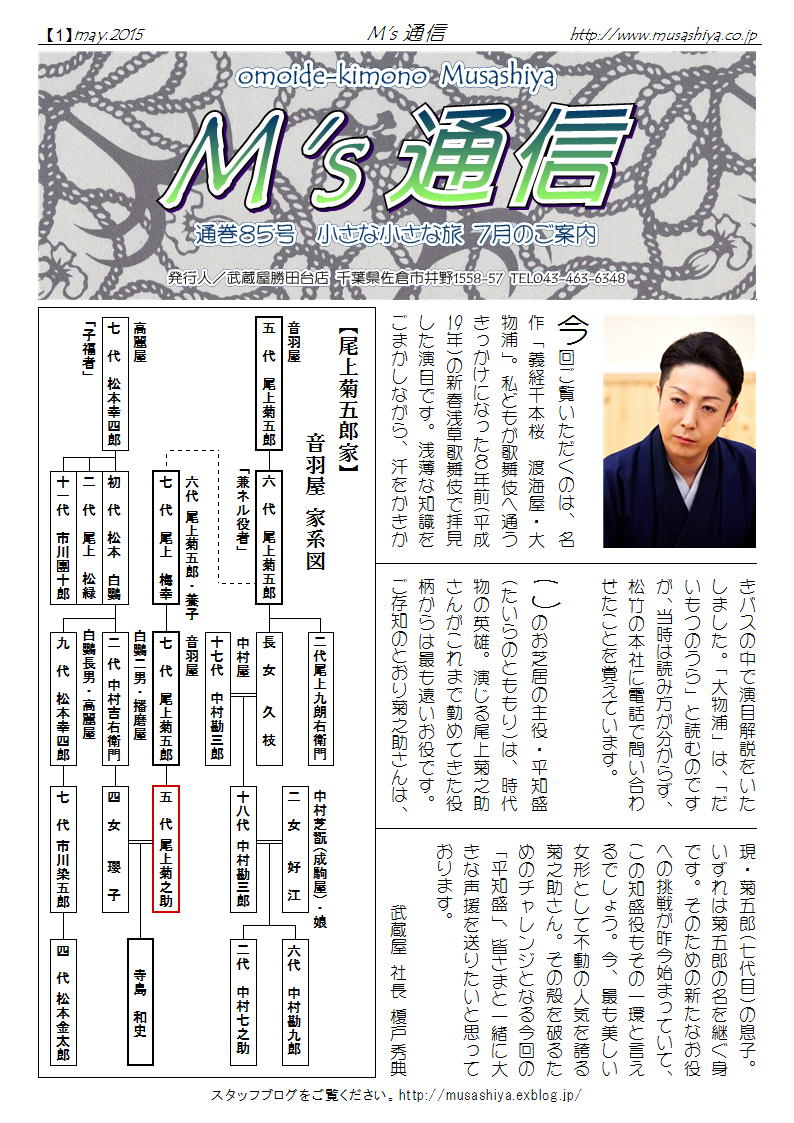 【1】may.2015
M's 通信
http://www.musashiya.co.jp
omoide-kimono Musashiya
M's 通信
通巻85号 小さな小さな旅 7月のご案内
発行人/武蔵屋勝田台店 千葉県佐倉市井野1558-57 TEL043-463-6348
今回ご覧いただくのは、名
作「義経千本桜 渡海屋・大
物浦」。私どもが歌舞伎へ通う
きっかけになった8年前(平成
19年)の新春浅草歌舞伎で拝見
した演目です。浅薄な知識を
ごまかしながら、汗をかきか
きバスの中で演目解説をいた
しました。「大物浦」は、「だ
いもつのうら」と読むのです
が、当時は読み方が分からず、
松竹の本社に電話で問い合わ
せたことを覚えています。
このお芝居の主役・平知盛
(たいらのとももり)は、時代
物の英雄。演じる尾上菊之助
さんがこれまで勤めてきた役
柄からは最も遠いお役です。
ご存知のとおり菊之助さんは、
現・菊五郎(七代目)の息子。
いずれは菊五郎の名を継ぐ身
です。そのための新たなお役
への挑戦が昨今始まっていて、
この知盛役もその一環と言え
るでしょう。今、最も美しい
女形として不動の人気を誇る
菊之助さん。その殻を破るた
めのチャレンジとなる今回の
「平知盛」、皆さまと一緒に大
きな声援を送りたいと思って
おります。
武蔵屋 社長 榎戸秀典
【尾上菊五郎家】
音羽屋 家系図
音羽屋
五代 尾上菊五郎
高麗屋
七代 松本幸四郎
「子福者」
六代 尾上菊五郎
「兼ネル役者」
六代 尾上菊五郎・養子
七代 尾上 梅幸
初代 松本 白鸚
二代 尾上 松緑
十一代 市川團十郎
二代尾上九朗右衛門
長女 久枝
中村屋
十七代 中村勘三郎
音羽屋
七代 尾上菊五郎
白鸚二男・播磨屋
二代 中村吉右衛門
白鸚長男・高麗屋
九代 松本幸四郎
中村芝翫(成駒屋)・娘
二女 好江
十八代 中村勘三郎
五代 尾上菊之助
四女 瓔子
七代 市川染五郎
六代 中村勘九郎
二代 中村七之助
寺島 和史
四代 松本金太郎
スタッフブログをご覧ください。http://musashiya.exblog.jp/